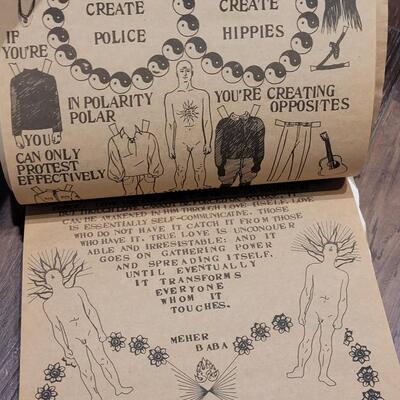 CREATE CREATE
POLICE HIPPIES
IF
YOU'RE
IN POLARITY YOU'RE CREATING
POLAR OPPOSITES
YOU
CAN ONLY
PROTEST
EFFECTIVELY
CAN BE AWAKENED IN HIM THROUGH LOVE ITSELF. LOVE
IS ESSENTIALLY SELF-COMMUNICATIVE. THOSE
WHO DO NOT HAVE IT CATCH IT FROM THOSE
WHO HAVE IT. TRUE LOVE IS UNCONQUER
ABLE AND IRRESISTABLE; AND IT
GOES ON GATHERING POWER
AND SPREADING ITSELF,
UNTIL EVENTUALLY
IT TRANSFORMS
EVERYONE
WHOM IT
TOUCHES.
MEHER
BABA